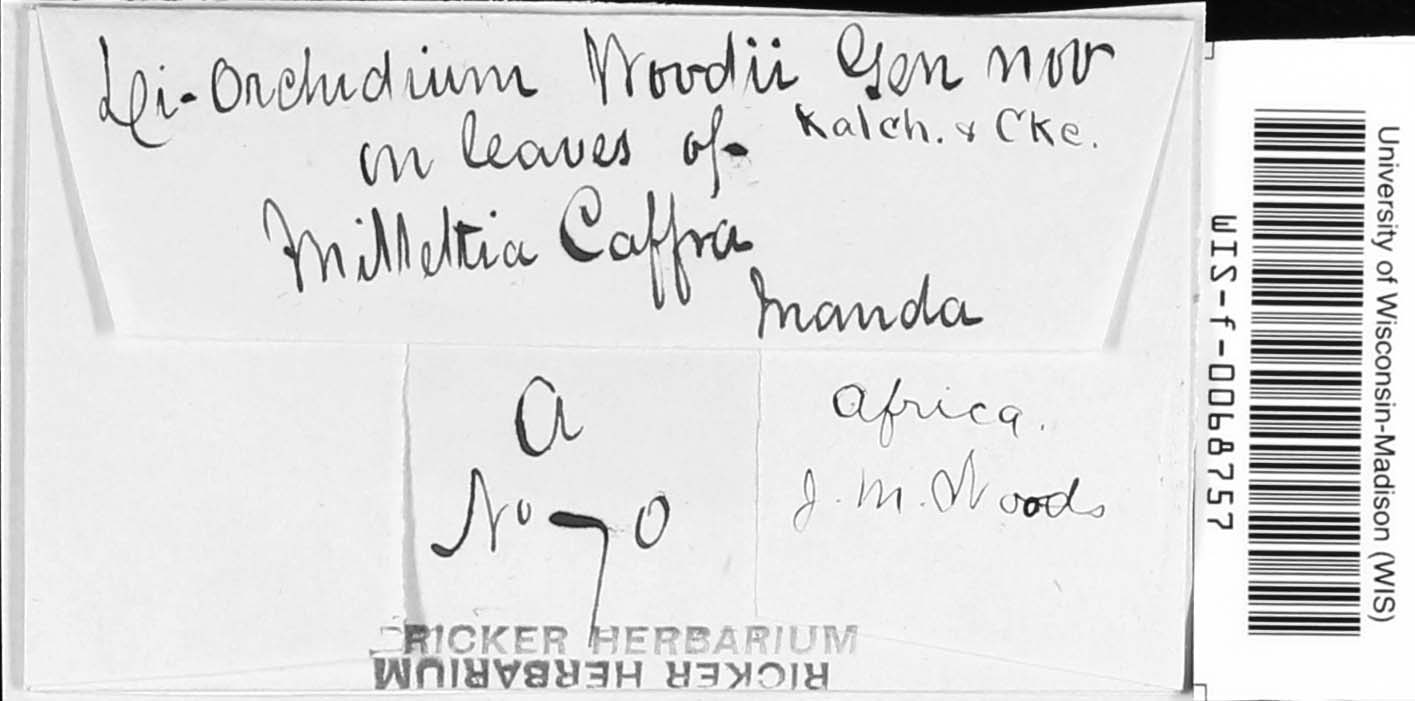 Di-Orchidium Woodii Gen nov
Kalch. & Cke.
on leaves of
Millettia Caffra
Inanda
a
No 70
Africa.
J. M. Woods
RICKER HERBARIUM
RICKER HERBARIUM
WIS-f-0068757
University of Wisconsin-Madison (WIS)